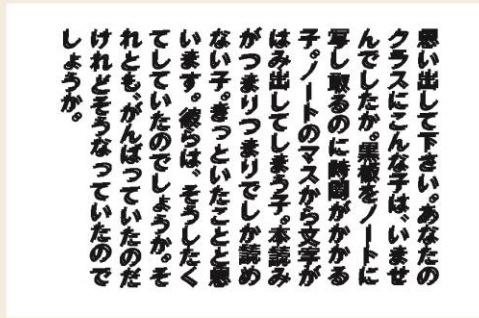 思い出して下さい。あなたの
クラスにこんな子は、いませ
んでしたか。黒板をノートに
写し取るのに時間がかかる
子。ノートのマスから文字が
はみ出してしまう子。本読み
がつまりつまりでしか読め
ない子。きっといたことと思
います。彼らは、そうしたく
てしていたのでしょうか。そ
れとも、がんばっていたのだ
けれどそうなっていたので
しょうか。